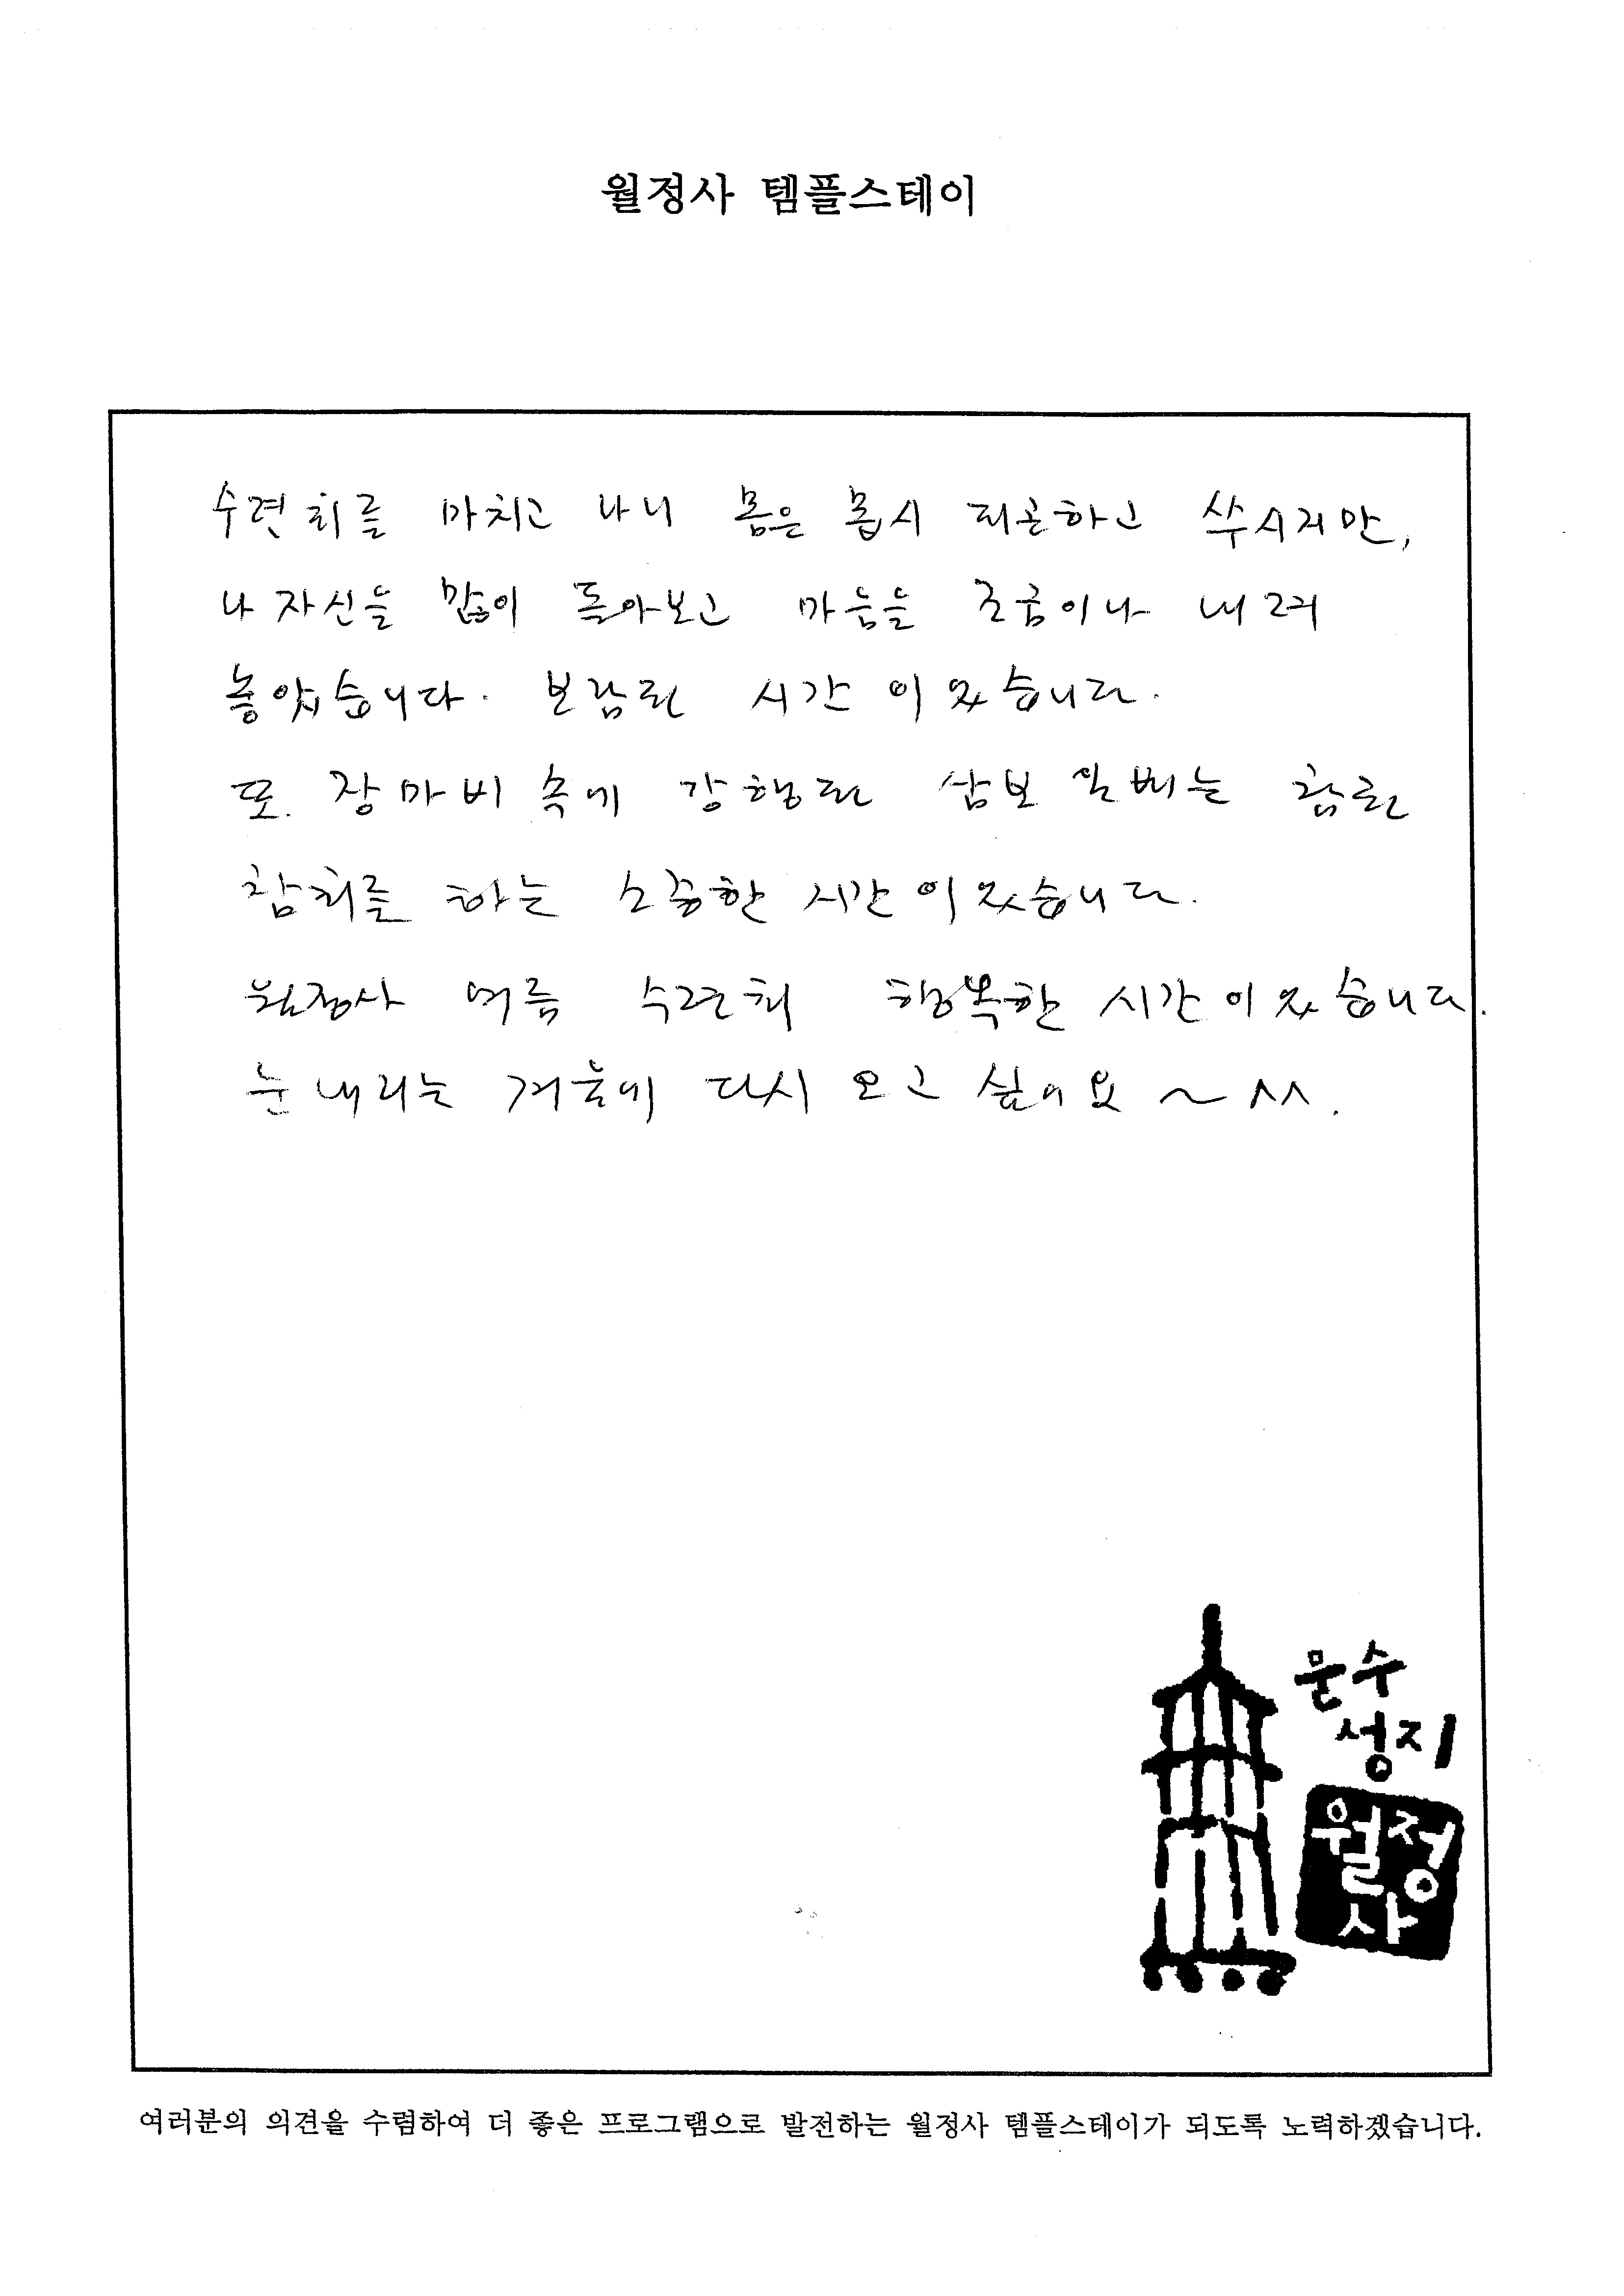 월정사 템플스테이
수련회를 마치고 나니 몸은 몹시 피곤하고 쑤시지만,
나 자신을 많이 돌아보고 마음을 조금이나 내려
놓았습니다. 보람된 시간이었습니다.
또. 장마비 속에 강행된 삼보일배는 참된
참회를 하는 소중한 시간이었습니다.
월정사 여름 수련회 행복한 시간이었습니다.
눈 내리는 겨울에 다시 오고 싶어요~^^.
문수
성지
월정
사
여러분의 의견을 수렴하여 더 좋은 프로그램으로 발전하는 월정사 템플스테이가 되도록 노력하겠습니다.